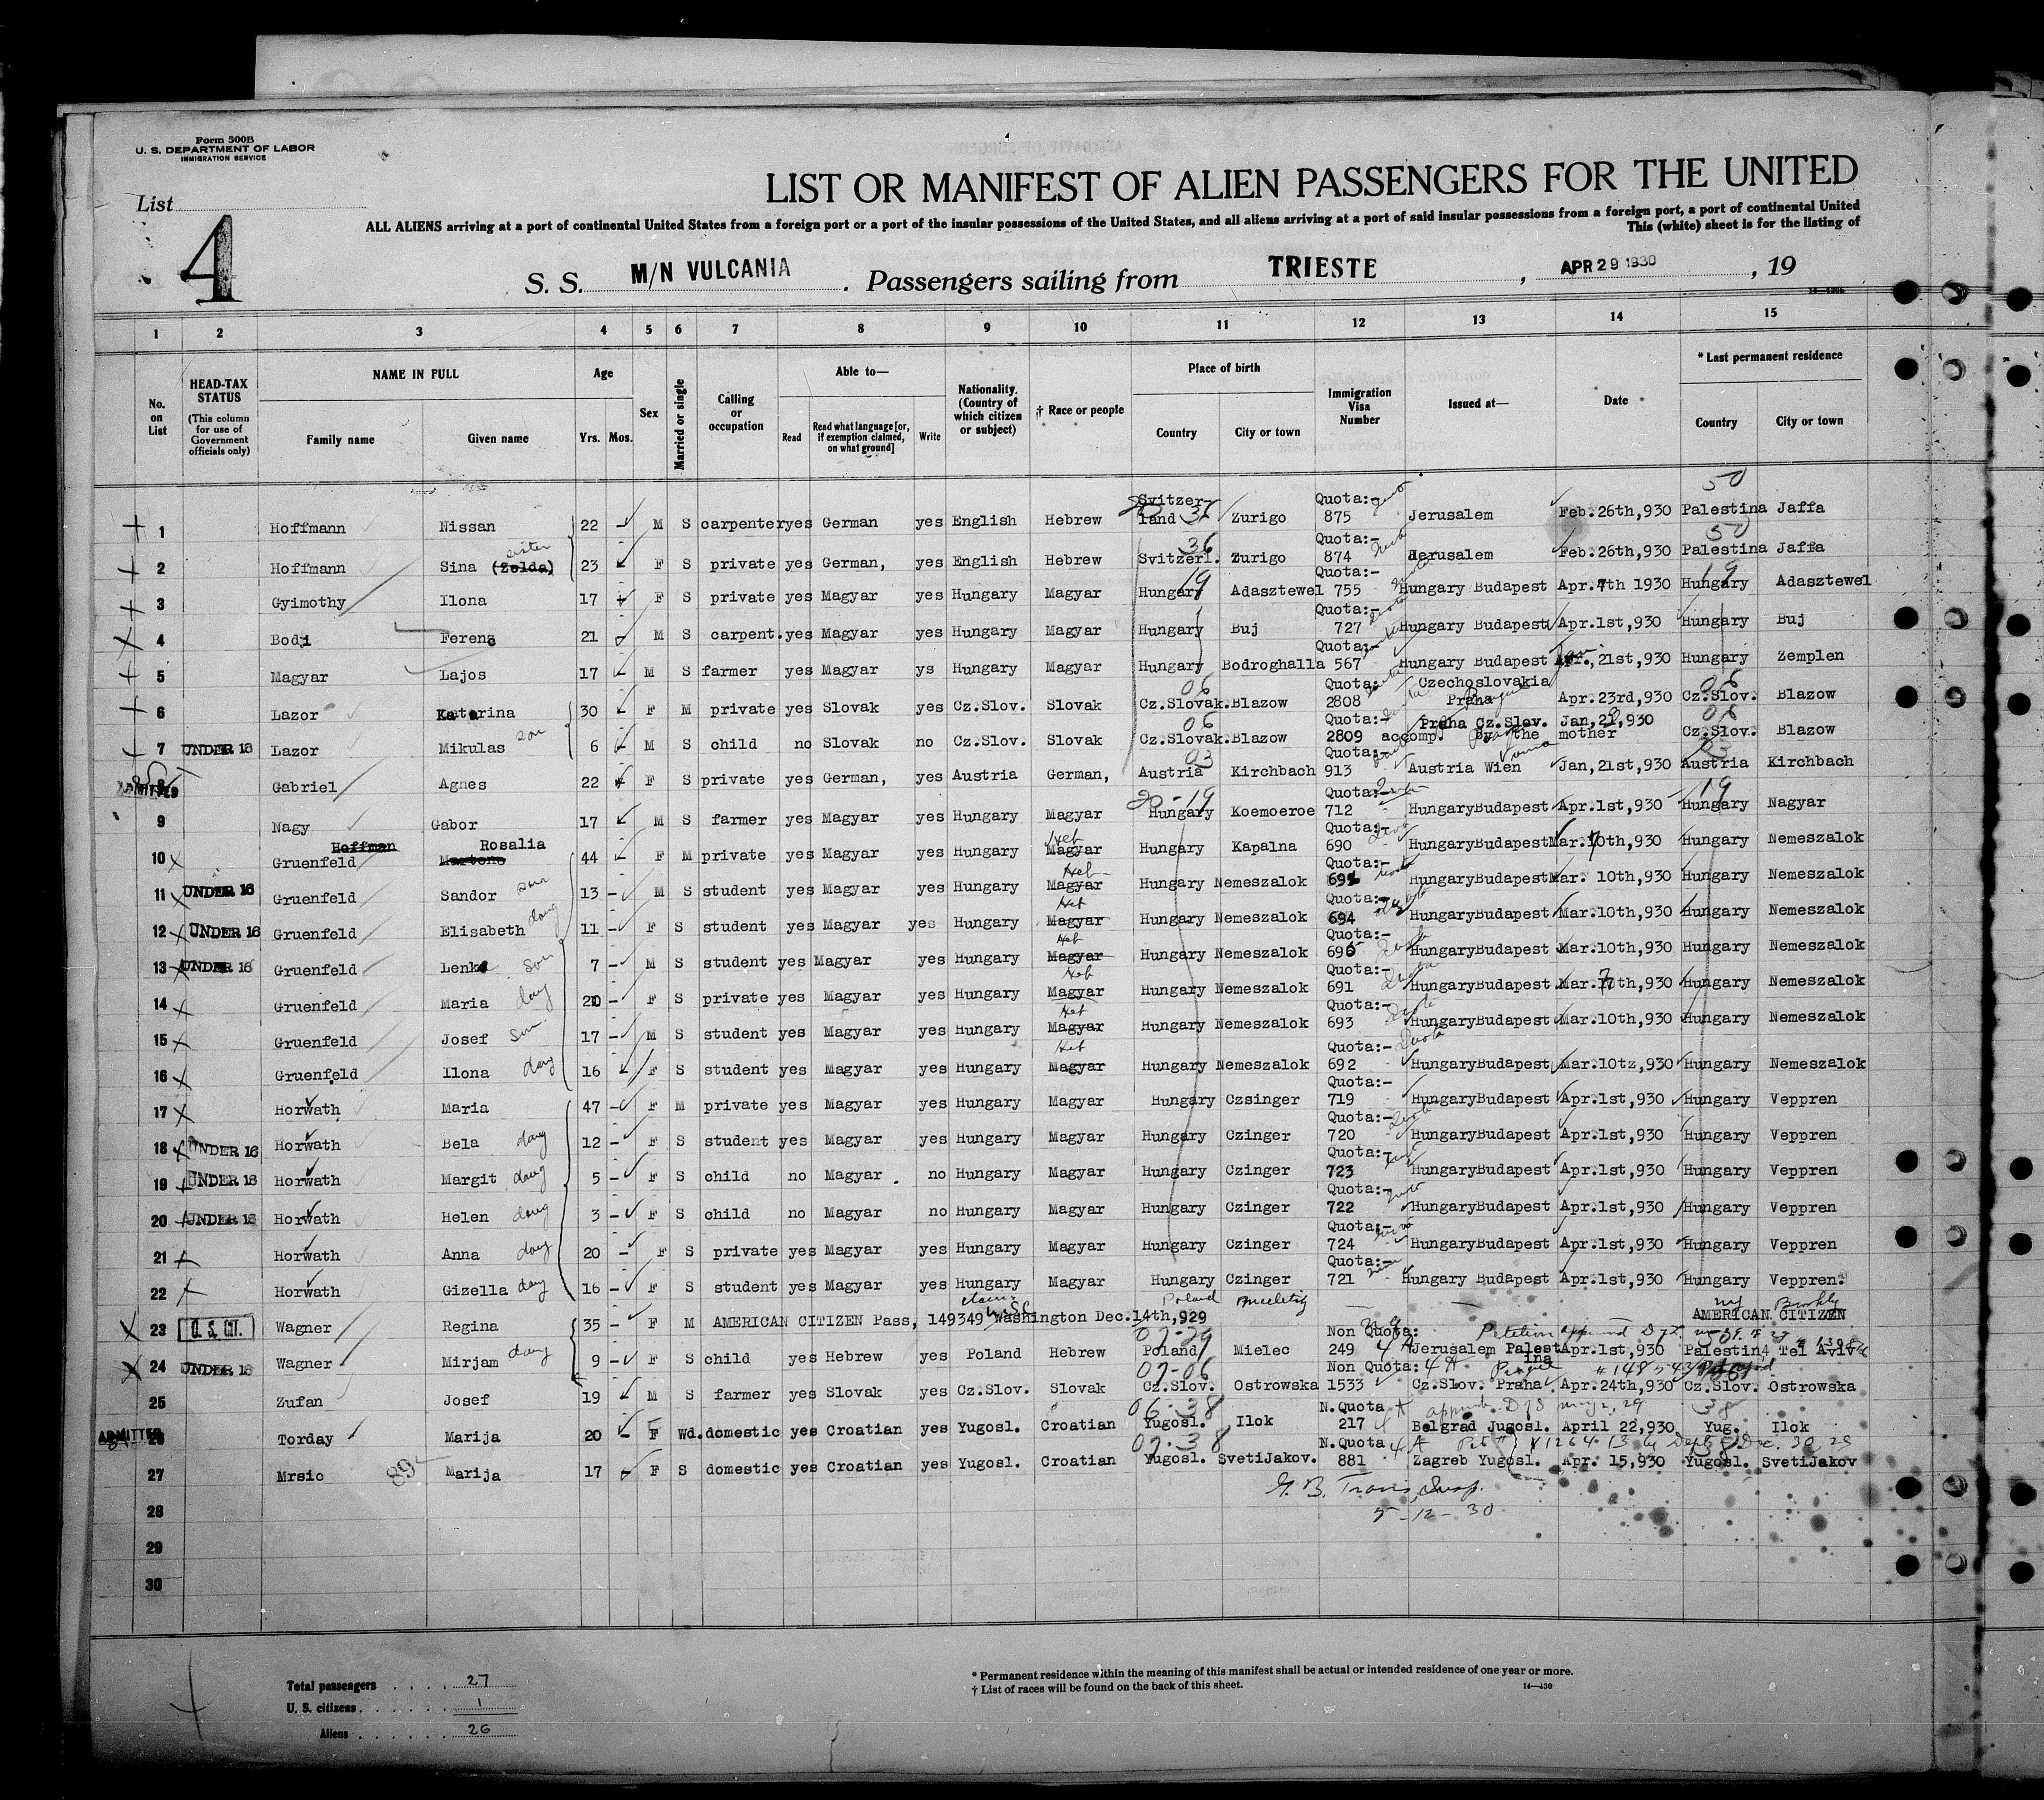 Form 500B
U. S. DEPARTMENT OF LABOR
IMMIGRATION SERVICE
List
4
LIST OR MANIFEST OF ALIEN PASSENGERS FOR THE UNITED
ALL ALIENS arriving at a port of continental United States from a foreign port or a port of the insular possessions of the United States, and all aliens arriving at a port of said insular possessions from a foreign port, a port of continental United
This (white) sheet is for the listing of
S. S. M/N VULCANIA. Passengers sailing from TRIESTE, APR 29 1930, 19
1 2 3 4 5 6 7 8 9 10 11 12 13 14 15
No. on List
HEAD-TAX STATUS (This column for use of Government officials only)
NAME IN FULL Family name Given name
Age Yrs. Mos.
Sex
Married or single
Calling or occupation
Able to— Read Read what language [or, if exemption claimed, on what ground] Write
Nationality. (Country of which citizen or subject)
† Race or people
Place of birth Country City or town
Immigration Visa Number
Issued at—
Date
* Last permanent residence Country City or town
1 Hoffmann Nissan 22 M S carpenter yes German yes English Hebrew Svitzerland Zurigo Quota:- 875 Jerusalem Feb. 26th,930 Palestina Jaffa
2 Hoffmann Sina (Zelda) sister 23 F S private yes German, yes English Hebrew Svitzerl. Zurigo Quota:- 874 Jerusalem Feb.26th,930 Palestina Jaffa
3 Gyimothy Ilona 17 F S private yes Magyar yes Hungary Magyar Hungary Adasztewel Quota:- 755 Hungary Budapest Apr.7th 1930 Hungary Adasztewel
4 Bodi Ferenc 21 M S carpent. yes Magyar yes Hungary Magyar Hungary Buj Quota:- 727 Hungary Budapest Apr.1st,930 Hungary Buj
5 Magyar Lajos 17 M S farmer yes Magyar ys Hungary Magyar Hungary Bodroghalla Quota:- 567 Hungary Budapest 21st,930 Hungary Zemplen
6 Lazor Katarina 30 F M private yes Slovak yes Cz.Slov. Slovak Cz.Slovak. Blazow Quota:- 2808 Czechoslovakia Praha Apr.23rd,930 Cz.Slov. Blazow
7 UNDER 16 Lazor Mikulas son 6 M S child no Slovak no Cz.Slov. Slovak Cz.Slovak. Blazow Quota:- 2809 Praha Cz.Slov. Jan, ,930 accomp. by the mother Cz.Slov. Blazow
8 ADMITTED Gabriel Agnes 22 F S private yes German, yes Austria German, Austria Kirchbach Quota:- 913 Austria Wien Jan,21st,930 Austria Kirchbach
9 Nagy Gabor 17 M S farmer yes Magyar yes Hungary Magyar Hungary Koemoeroe Quota:- 712 HungaryBudapest Apr.1st,930 Hungary Nagyar
10 Hoffman Gruenfeld Rosalia 44 F M private yes Magyar yes Hungary Magyar Heb Hungary Kapalna Quota:- 690 HungaryBudapest Mar.10th,930 Hungary Nemeszalok
11 UNDER 16 Gruenfeld Sandor son 13 M S student yes Magyar yes Hungary Magyar Heb Hungary Nemeszalok Quota:- HungaryBudapest Mar. 10th,930 Hungary Nemeszalok
12 UNDER 16 Gruenfeld Elisabeth daug 11 F S student yes Magyar yes Hungary Magyar Heb Hungary Nemeszalok Quota:- 694 HungaryBudapest Mar.10th,930 Hungary Nemeszalok
13 UNDER 16 Gruenfeld son 7 M S student yes Magyar yes Hungary Magyar Heb Hungary Nemeszalok Quota:- 696 HungaryBudapest Mar.10th,930 Hungary Nemeszalok
14 Gruenfeld Maria daug F S private yes Magyar yes Hungary Magyar Heb Hungary Nemeszalok Quota:- 691 HungaryBudapest Mar. 7th,930 Hungary Nemeszalok
15 Gruenfeld Josef Son 17 M S student yes Magyar yes Hungary Magyar Heb Hungary Nemeszalok Quota:- 693 HungaryBudapest Mar.10th,930 Hungary Nemeszalok
16 Gruenfeld Ilona daug 16 F S student yes Magyar yes Hungary Magyar Heb Hungary Nemeszalok Quota:- 692 HungaryBudapest Mar.10tz,930 Hungary Nemeszalok
17 Horwath Maria 47 F M private yes Magyar yes Hungary Magyar Hungary Czsinger Quota:- 719 HungaryBudapest Apr.1st,930 Hungary Veppren
18 UNDER 16 Horwath Bela daug 12 F S student yes Magyar yes Hungary Magyar Hungary Czinger Quota:- 720 HungaryBudapest Apr.1st,930 Hungary Veppren
19 UNDER 16 Horwath Margit daug 5 F S child no Magyar . no Hungary Magyar Hungary Czinger Quota:- 723 HungaryBudapest Apr.1st,930 Hungary Veppren
20 UNDER 16 Horwath Helen daug 3 F S child no Magyar no Hungary Magyar Hungary Czinger Quota:- 722 HungaryBudapest Apr.1st,930 Hungary Veppren
21 Horwath Anna daug 20 F S private yes Magyar yes Hungary Magyar Hungary Czinger Quota:- 724 HungaryBudapest Apr.1st,930 Hungary Veppren
22 Horwath Gizella daug 16 F S student yes Magyar yes Hungary Magyar Hungary Czinger Quota:- 721 Hungary Budapest Apr.1st,930 Hungary Veppren.
23 U. S. CIT. Wagner Regina 35 F M AMERICAN CITIZEN Pass, 149349 Washington Dec.14th,929 Poland AMERICAN CITIZEN
24 UNDER 16 Wagner Mirjam daug 9 F S child yes Hebrew yes Poland Hebrew Poland Mielec Non Quota: 249 Jerusalem Palestina Apr.1st,930 Palestina Tel Aviv
25 Zufan Josef 19 M S farmer yes Slovak yes Cz.Slov. Slovak Cz.Slov. Ostrowska Non Quota: 1533 Cz.Slov. Praha Apr.24th,930 Cz.Slov. Ostrowska
26 ADMITTED Torday Marija 20 F Wd. domestic yes Croatian yes Yugosl. Croatian Yugosl. Ilok N.Quota 217 Belgrad Jugosl. April 22,930 Yug. Ilok
27 Mrsic 89 Marija 17 F S domestic yes Croatian yes Yugosl. Croatian Yugosl. SvetiJakov. N.Quota 881 Zagreb Yugosl. Apr. 15,930 Yugosl. SvetiJakov
28 5-12-30
29
30
Total passengers . . . . 27
U. S. citizens . . . . . . 1
Aliens . . . . . . 26
* Permanent residence within the meaning of this manifest shall be actual or intended residence of one year or more.
† List of races will be found on the back of this sheet.
14—430